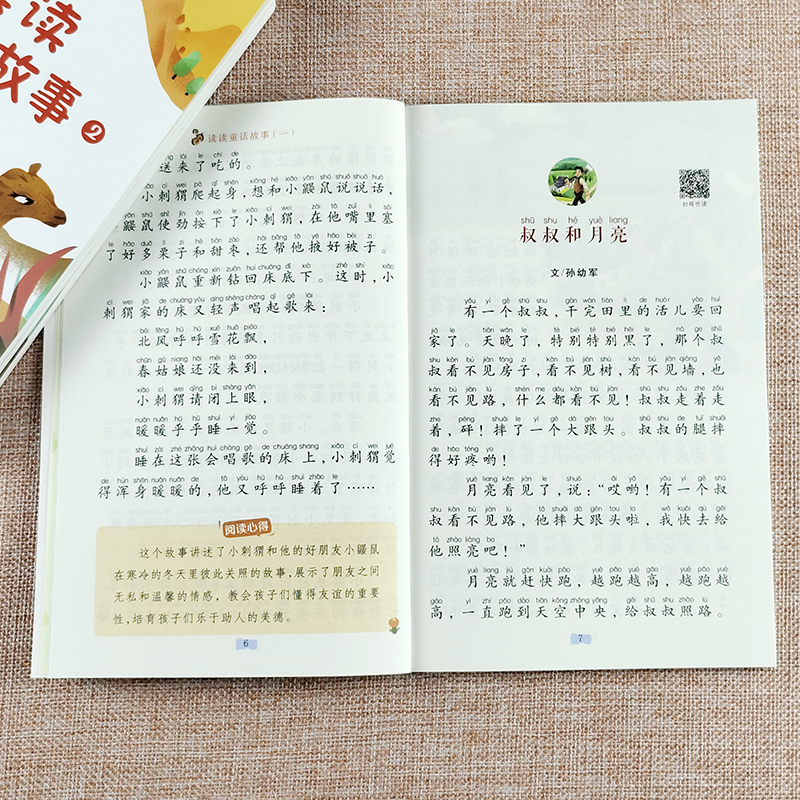 读
故事2
读读童话故事(一)
送来了吃的。
小刺猬爬起身,想和小鼹鼠说说话,
鼹鼠使劲按下了小刺猬,在他嘴里塞
了好多栗子和甜枣,还帮他掖好被子。
小鼹鼠重新钻回床底下。这时,小
刺猬家的床又轻声唱起歌来:
北风呼呼雪花飘,
春姑娘还没来到,
小刺猬请闭上眼,
暖暖乎乎睡一觉。
睡在这张会唱歌的床上,小刺猬觉
得浑身暖暖的,他又呼呼睡着了……
阅读心得
这个故事讲述了小刺猬和他的好朋友小鼹鼠
在寒冷的冬天里彼此关照的故事,展示了朋友之间
无私和温馨的情感,教会孩子们懂得友谊的重要
性,培育孩子们乐于助人的美德。
6
扫码听读
shū shu hé yuè liang
叔叔和月亮
文/孙幼军
有一个叔叔,干完田里的活儿要回
家了。天晚了,特别特别黑了,那个叔
叔看不见房子,看不见树,看不见墙,也
看不见路,什么都看不见!叔叔走着走
着,砰!摔了一个大跟头。叔叔的腿摔
得好疼哟!
月亮看见了,说:“哎哟!有一个叔
叔看不见路,他摔大跟头啦,我快去给
他照亮吧!”
月亮就赶快跑,越跑越高,越跑越
高,一直跑到天空中央,给叔叔照路。
7